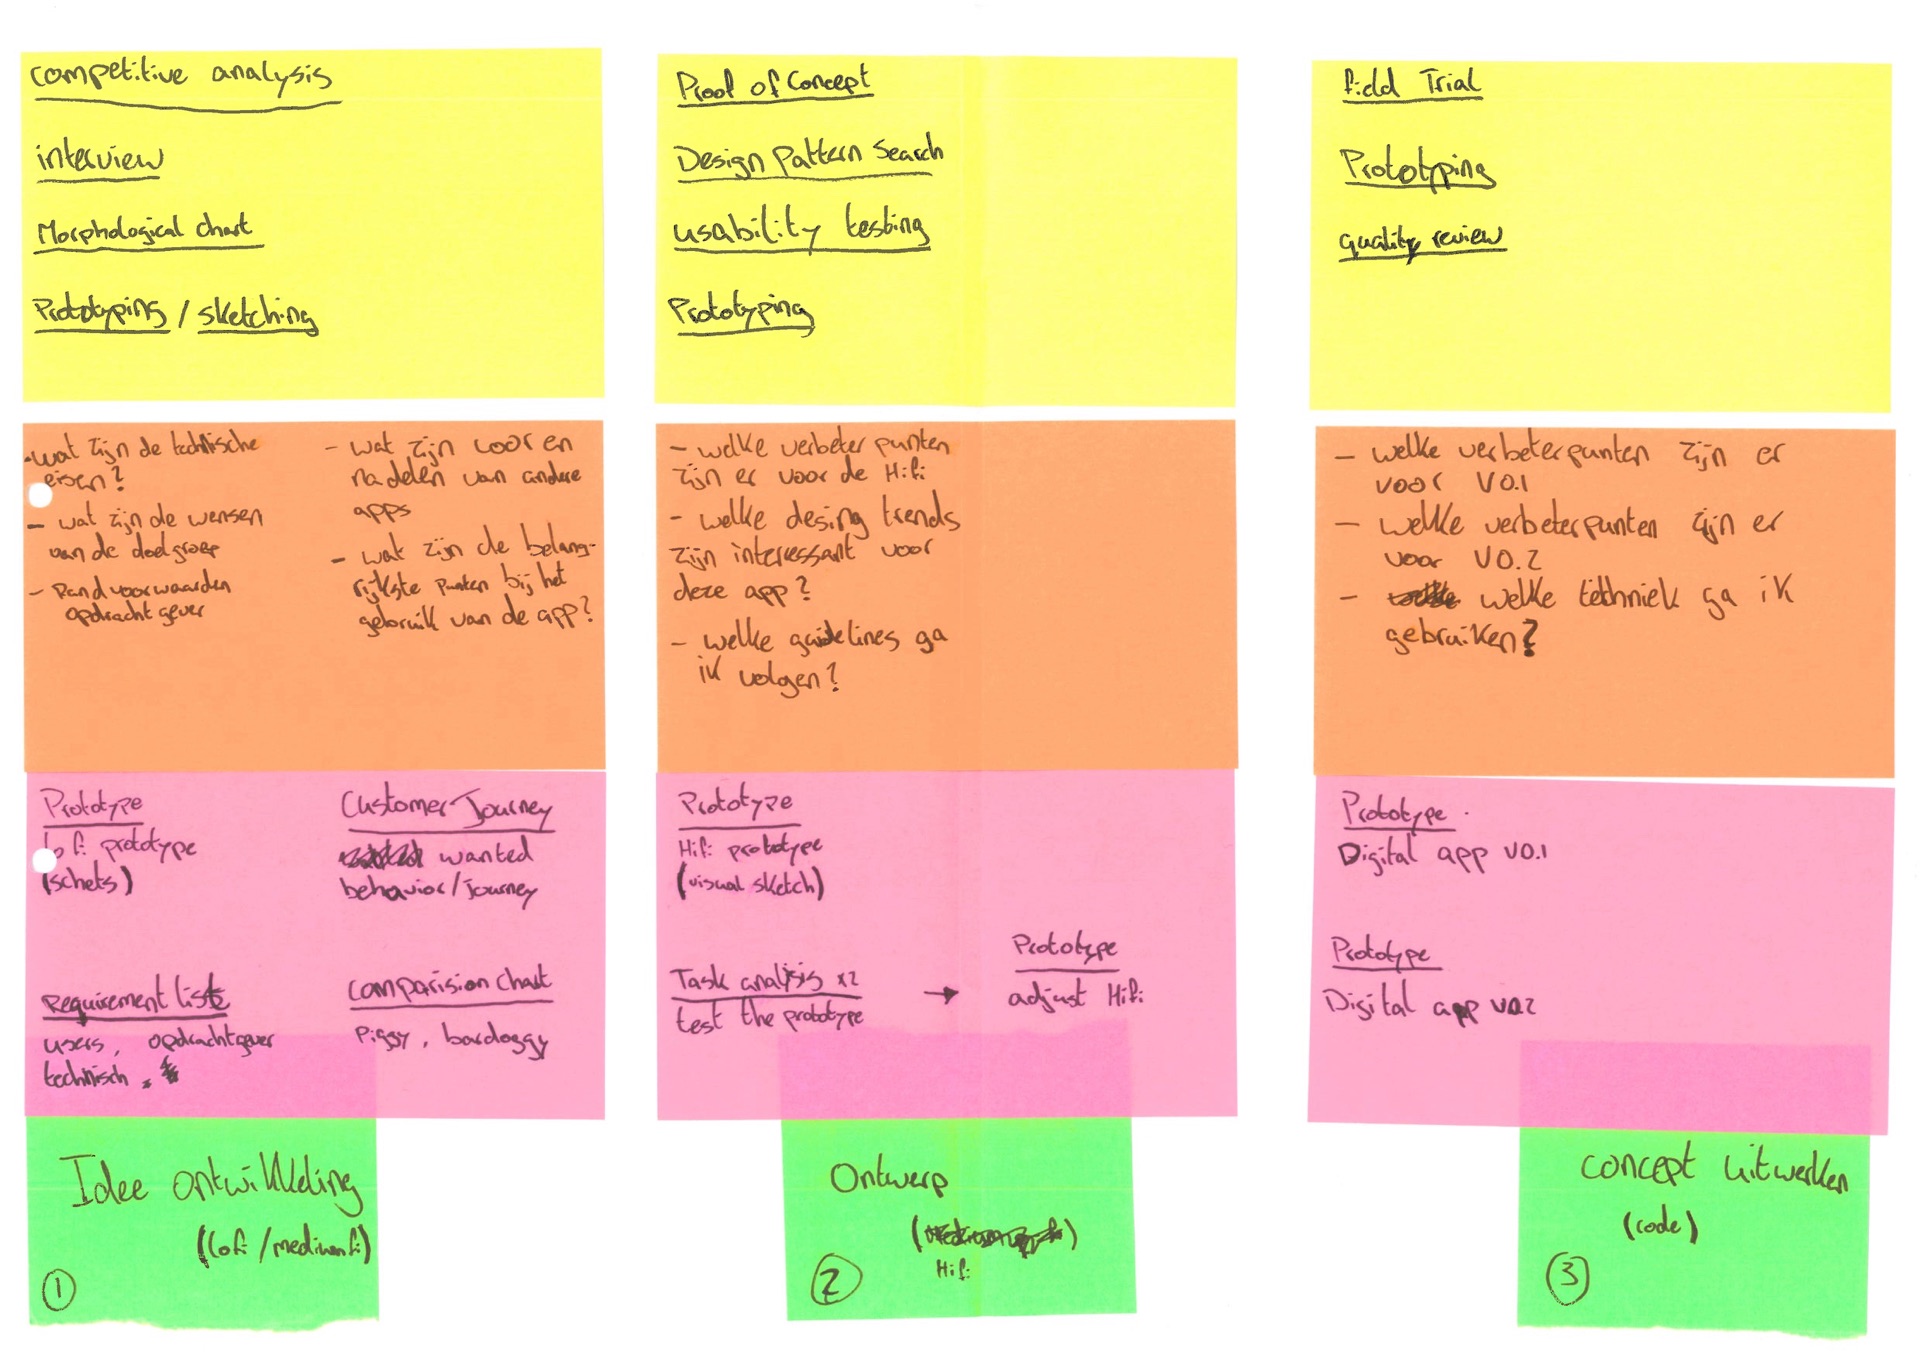 competitive analysis
interview
Morphological chart
Prototyping / sketching
- wat zijn de technische
eisen?
- wat zijn de wensen
van de doelgroep
- Randvoorwaarden
opdrachtgever
- wat zijn voor en
nadelen van andere
apps
- wat zijn de belang-
rijkste punten bij het
gebruik van de app?
Prototype
lofi prototype
(schets)
Customer Journey
wanted
behavior/journey
Requirement list
users, opdrachtgever
technisch.
Comparision chart
Piggy, bordoggy
Idee ontwikkeling
(lofi/mediumfi)
1
Proof of Concept
Design Pattern Search
usability testing
Prototyping
- welke verbeter punten
zijn er voor de Hifi
- welke desing trends
zijn interessant voor
deze app?
- welke guidelines ga
ik volgen?
Prototype
Hifi prototype
(visual sketch)
Task analysis x2
test the prototype
→
Prototype
adjust Hifi
Ontwerp
Hifi
2
field Trial
Prototyping
quality review
- welke verbeterpunten zijn er
voor V0.1
- welke verbeterpunten zijn er
voor V0.2
- welke techniek ga ik
gebruiken?
Prototype
Digital app v0.1
Prototype
Digital app v0.2
concept uitwerken
(code)
3